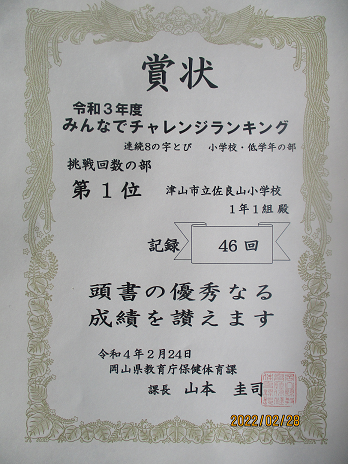 賞状
令和3年度
みんなでチャレンジランキング
連続8の字とび 小学校・低学年の部
挑戦回数の部
第1位 津山市立佐良山小学校
1年1組 殿
記録 46回
頭書の優秀なる
成績を讃えます
令和4年2月24日
岡山県教育庁保健体育課
課長 山本 圭司
2022/02/28